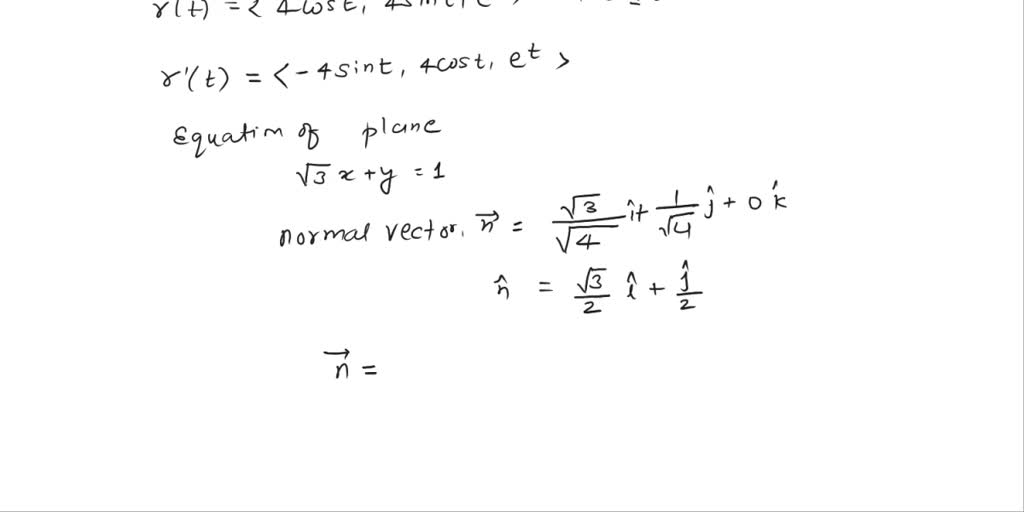 r(t) = < 4cost, 4sint, e
r'(t) = <-4sint, 4cost, e^t >
Equation of plane
√3 x + y = 1
normal vector, n⃗ = √3/√4 î + 1/√4 ĵ + 0 k̂
n̂ = √3/2 î + ĵ/2
n⃗ =